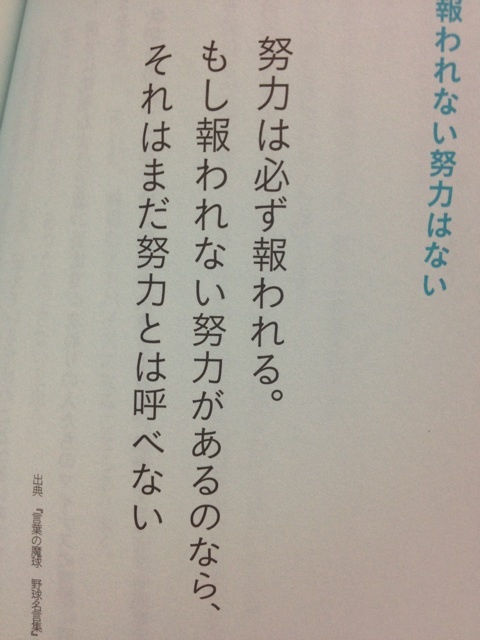 報われない努力はない
努力は必ず報われる。
もし報われない努力があるのなら、
それはまだ努力とは呼べない
出典、『言葉の魔球 野球名言集』